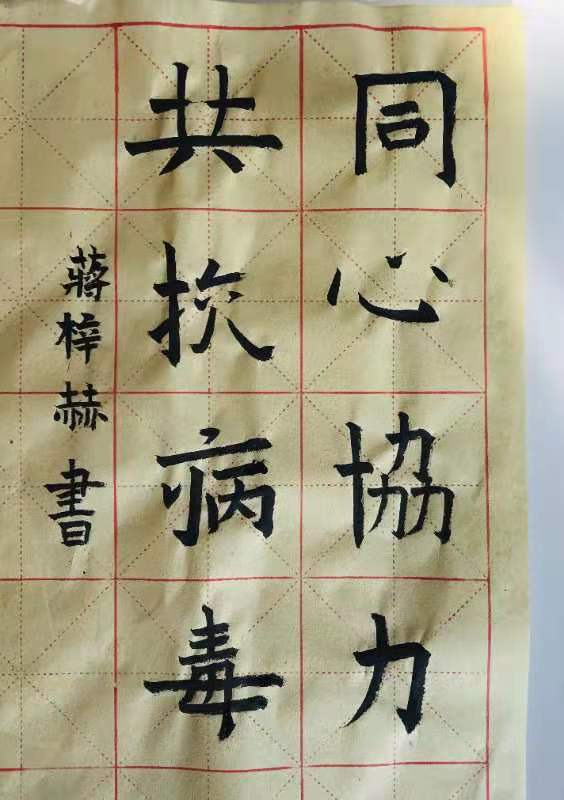 同心協力
共抗病毒
蔣梓赫書